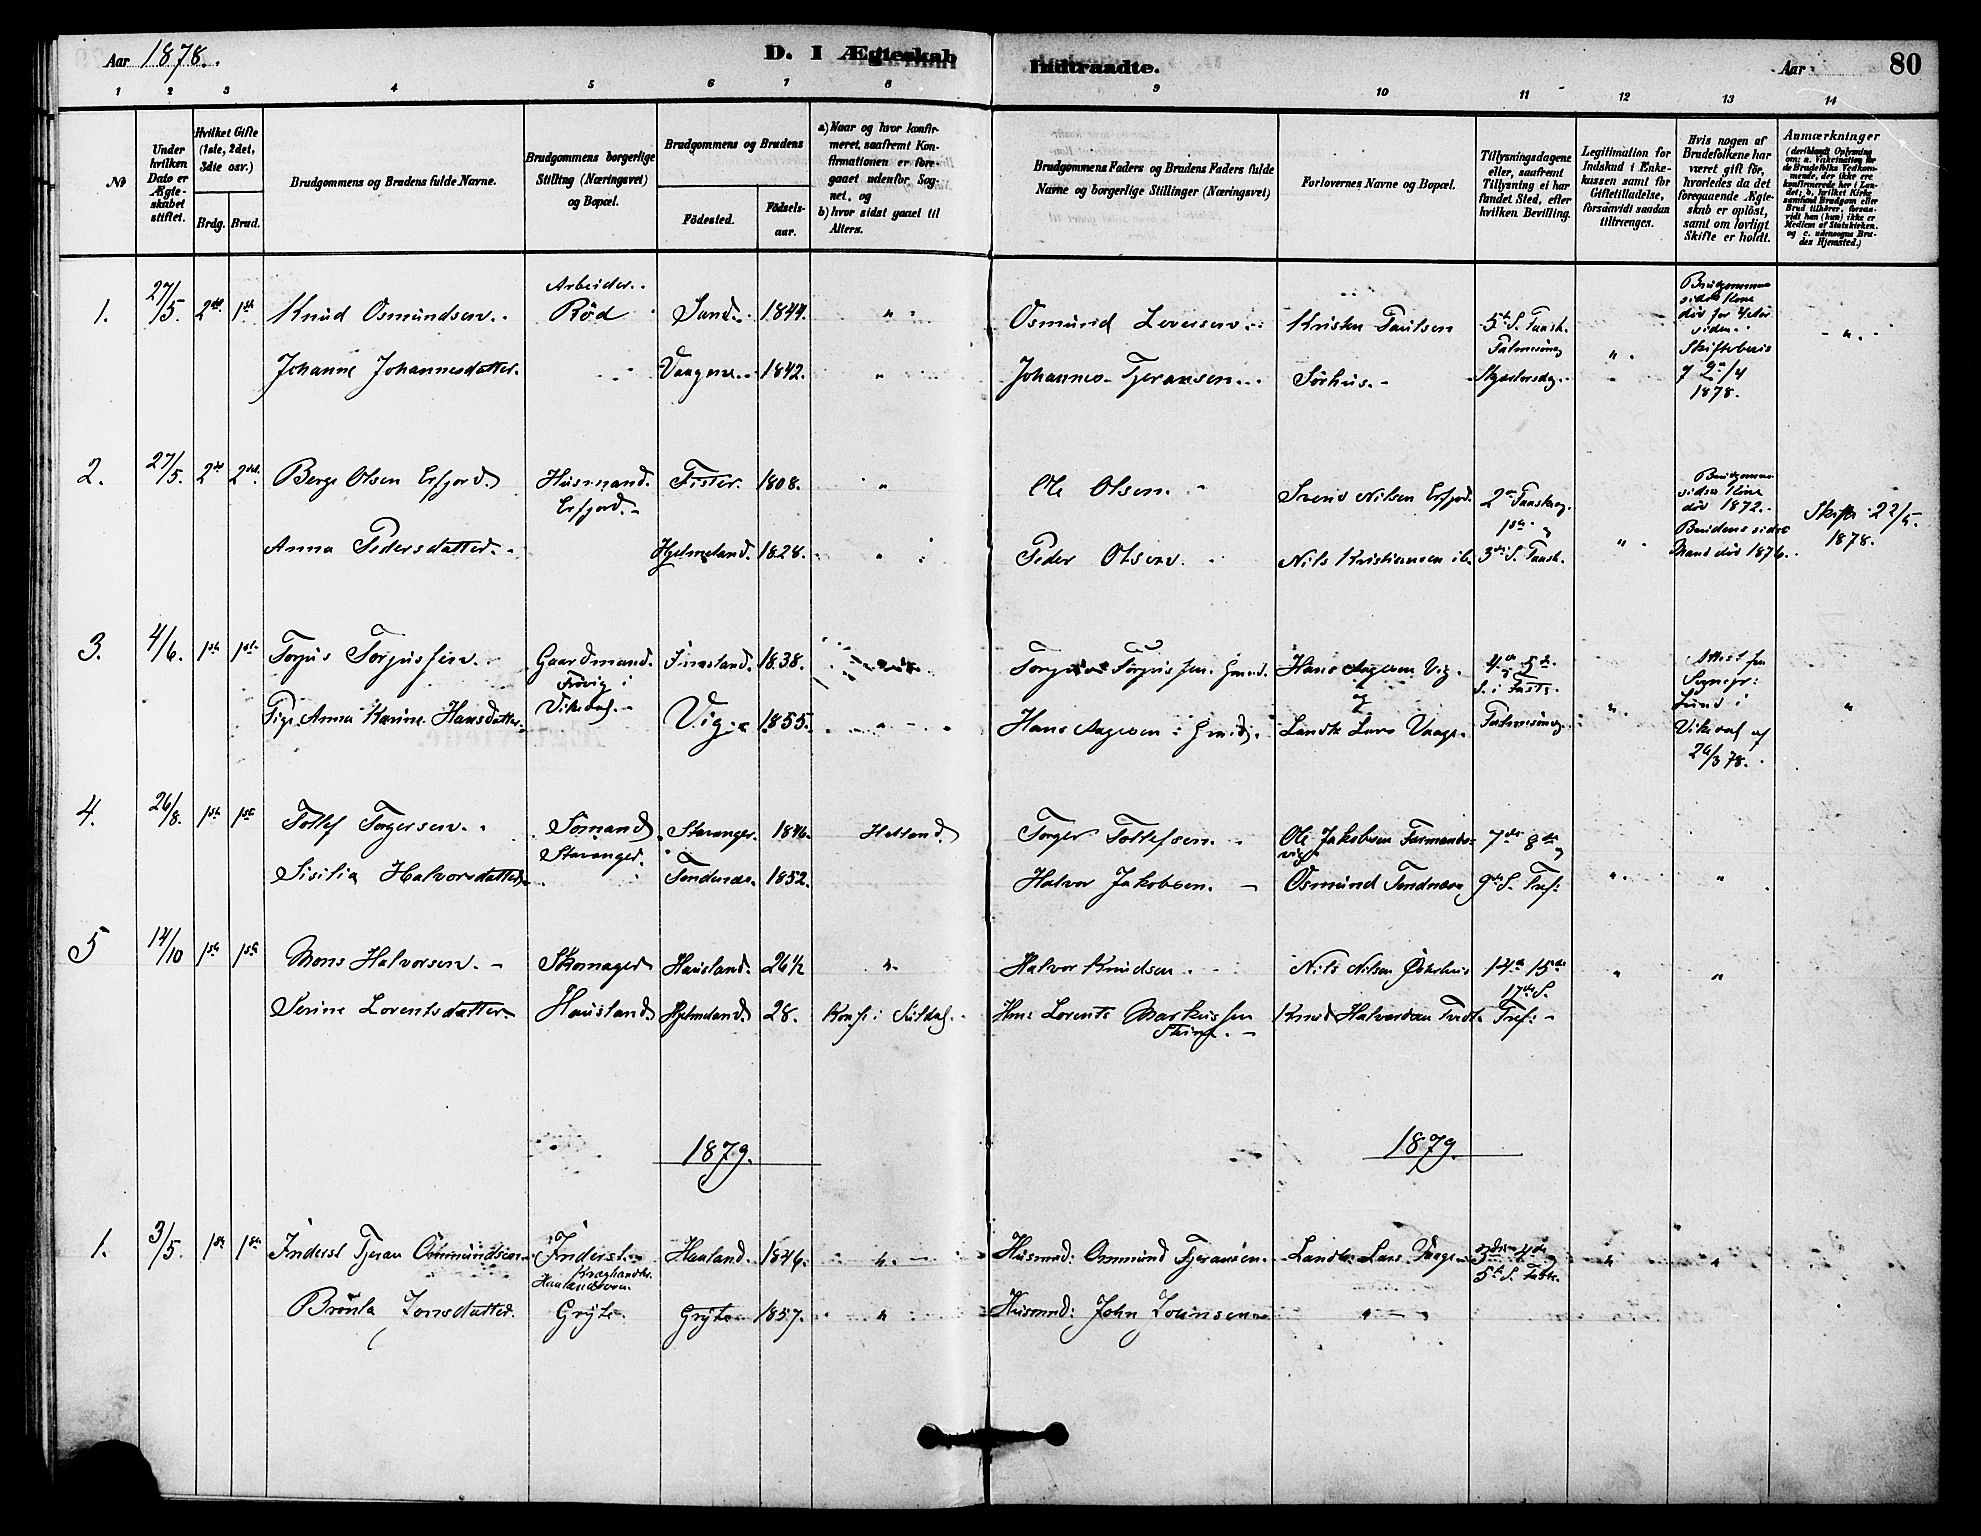 Aar 1878.
D. I Ægteskab
Indtraadte.
Aar
80
1 2 3 4 5 6 7 8 9 10 11 12 13 14
No
Under hvilken Dato er Ægteskabet stiftet.
Hvilket Gifte (1ste, 2det, 3die osv.)
Brdg. Brud.
Brudgommens og Brudens fulde Navne.
Brudgommens borgerlige Stilling (Næringsvei) og Bopæl.
Brudgommens og Brudens
Fødested. Fødsels-aar.
a) Naar og hvor konfirmeret, saafremt Konfirmationen er foregaaet udenfor Sognet, og
b) hvor sidst gaaet til Alters.
Brudgommens Faders og Brudens Faders fulde Navne og borgerlige Stillinger (Næringsvei)
Forlovernes Navne og Bopæl.
Tillysningsdagene eller, saafremt Tillysning ei har fundet Sted, efter hvilken Bevilling.
Legitimation for Indskud i Enkekassen samt for Giftetilladelse, forsaavidt saadan tiltrænges.
Hvis nogen af Brudefolkene har været gift før, hvorledes da det foregaaende Ægteskab er opløst, samt om lovligt Skifte er holdt.
Anmærkninger
1. 27/5. 2det 1ste Knud Osmundsen. Arbeider. Rød Sand. 1844. " Osmund Iversen. Kristen Paulsen 5te S. Faste.
Johanne Johannesdatter. Vaagene. 1842. " Johannes Tjeransen. Sørhus. Palmesøndag Skjærtorsdag. " Brudgommens sidste Kone død for 4 Aar siden. Skiftebevis 1878. "
2. 27/5. 2det 2det. Berge Olsen Erfjord. Husmand. Erfjord. Fister. 1808. " Ole Olsen. Svend Nilsen Erfjord. 2den Paaskedag.
Anna Pedersdatter. Hjelmeland. 1828. " Peder Olsen. Nils Kristiansen ib. 1ste og 3die S. Paask. " Brudgommens sidste Kone død 1872. Brudens sidste Mand død 1876. Skifte 22/5. 1878.
3. 4/6. 1ste 1ste Torjus Torjussen. Gaardmand. Frøvig i Vikedal. Imsland. 1838. Torjus Torjussen. Gmd. Hans Aagesen Vig. 4de og 5te S. i Faste.
Pige Anna Karine Hansdatter. Vig. 1855. " Hans Aagesen Gmd. og Landh. Lars Vaage. Palmesøndag. " Attest fra Sognepr: Lund i Vikedal af 24/3 78. "
4. 26/8. 1ste 1ste Tollef Torgersen. Sømand Stavanger. Stavanger. 1846. Hetland Torger Tollefsen. Ole Jakobsen 7de 8de og
Sisilia Halvorsdatter. Tendenes. 1852. Halvor Jakobsen. Osmund Tendnes 9de S. Tref: " "
5 14/10 1ste 1ste Mons Halvorsen. Skomager Hausland. 26½ " Halvor Knudsen. Nils Nilsen 14de 15de " "
Serine Lorentsdatter Hausland. Hjelmeland. 28. Konf. i Suldal. Hm: Lorents Markussen Knud Halvorsen 17de S. Tref:
1879. 1879.
1. 3/5. 1ste 1ste Inderst Tjeran Osmundsen Inderst. Hauland. 1846. " Husmd: Osmund Tjeransen. Landh. Lars Vaage 3die 4de og 5te S. Faste. " "
Brønla Jonsdatter. Grjyte Grjyte 1857. " Husmd: John " "